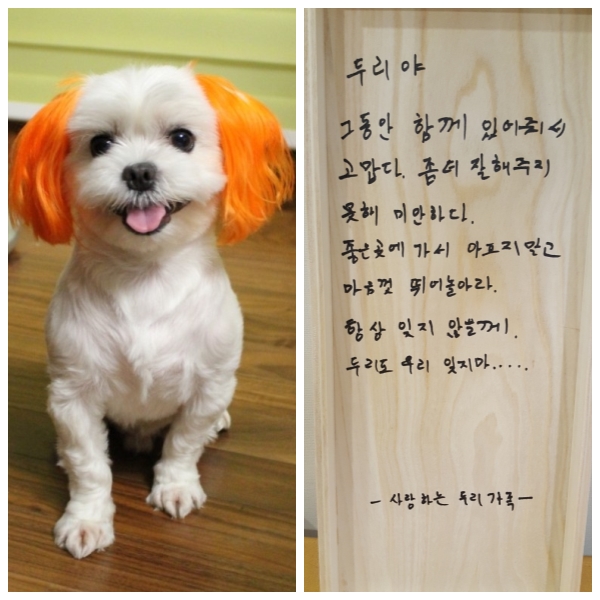 두리야
그동안 함께 있어줘서
고맙다. 좀더 잘해주지
못해 미안하다.
좋은곳에 가서 아프지말고
마음껏 뛰어놀아라.
항상 잊지 않을께.
두리도 우리 잊지마.....
- 사랑하는 두리가족 -